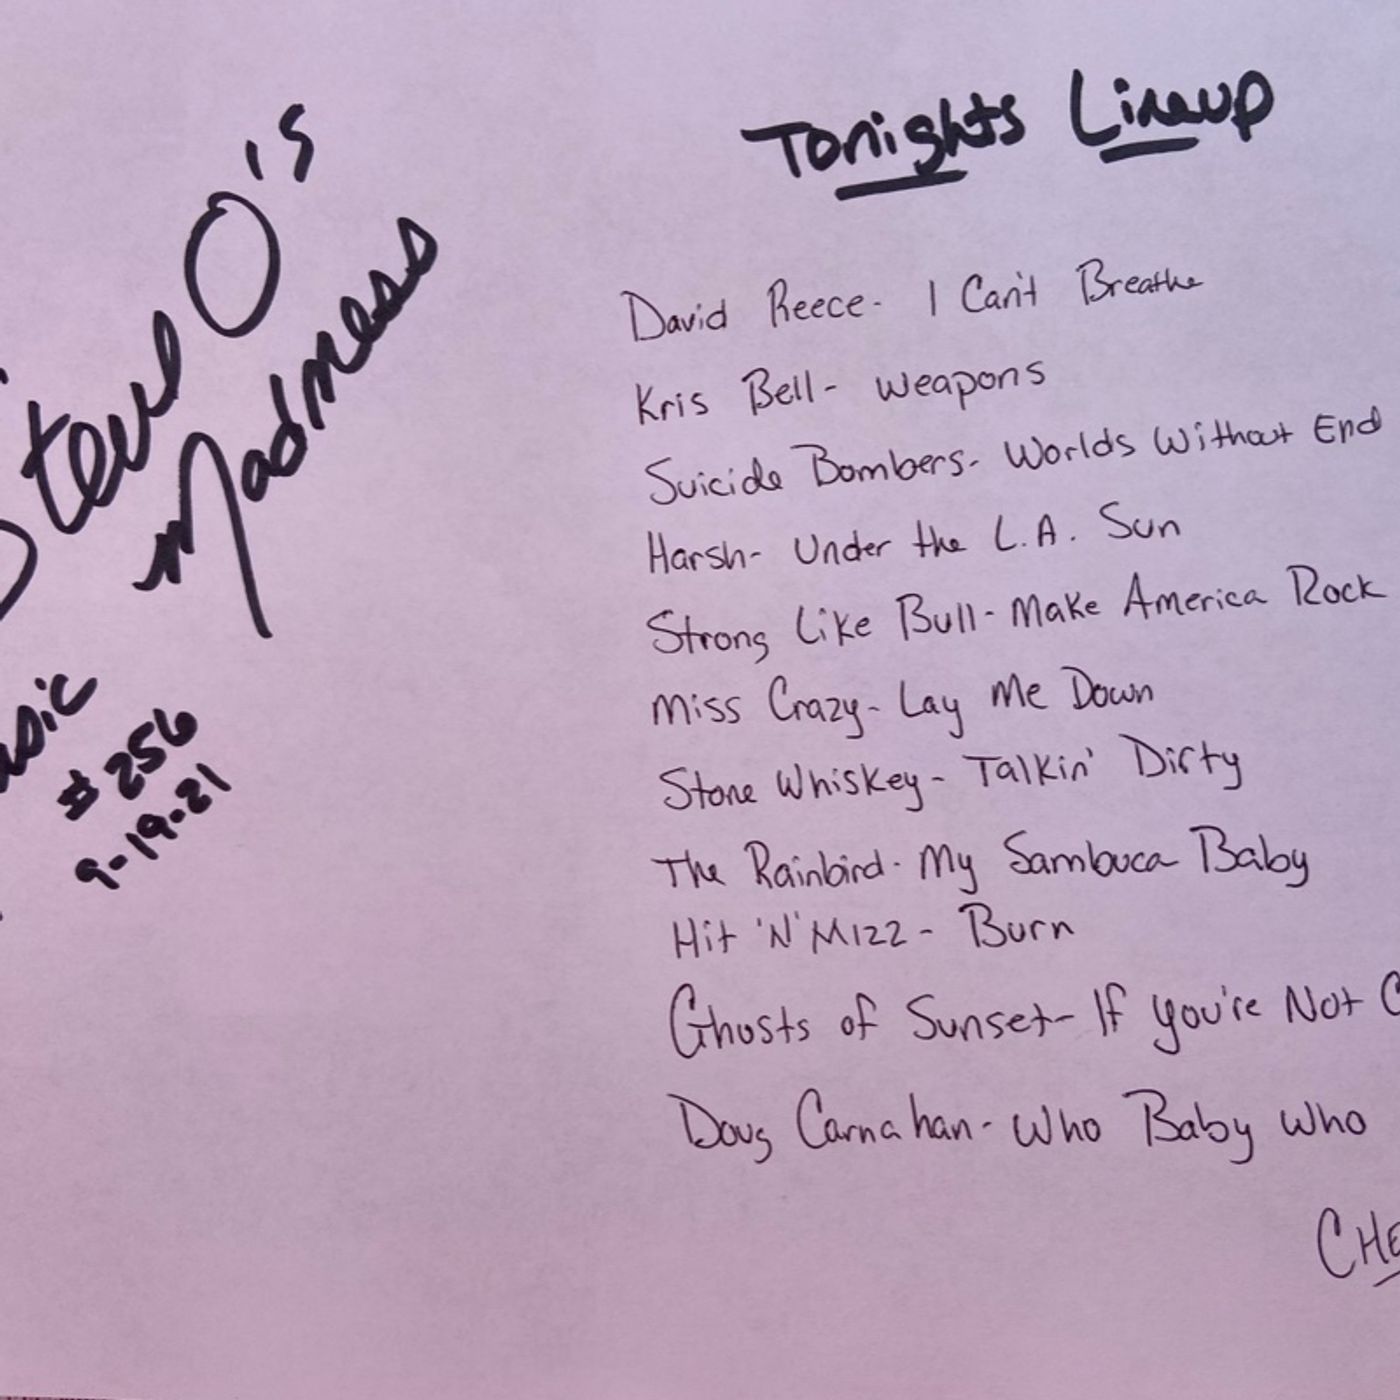 Steve O's
Madness
#256
9-19-21
Tonights Lineup
David Reece- I Can't Breathe
Kris Bell- Weapons
Suicide Bombers- Worlds Without End
Harsh- Under the L.A. Sun
Strong Like Bull- Make America Rock
Miss Crazy- Lay Me Down
Stone Whiskey- Talkin' Dirty
The Rainbird- My Sambuca Baby
Hit 'N' Mizz- Burn
Ghosts of Sunset- If You're Not
Doug Carnahan- Who Baby Who